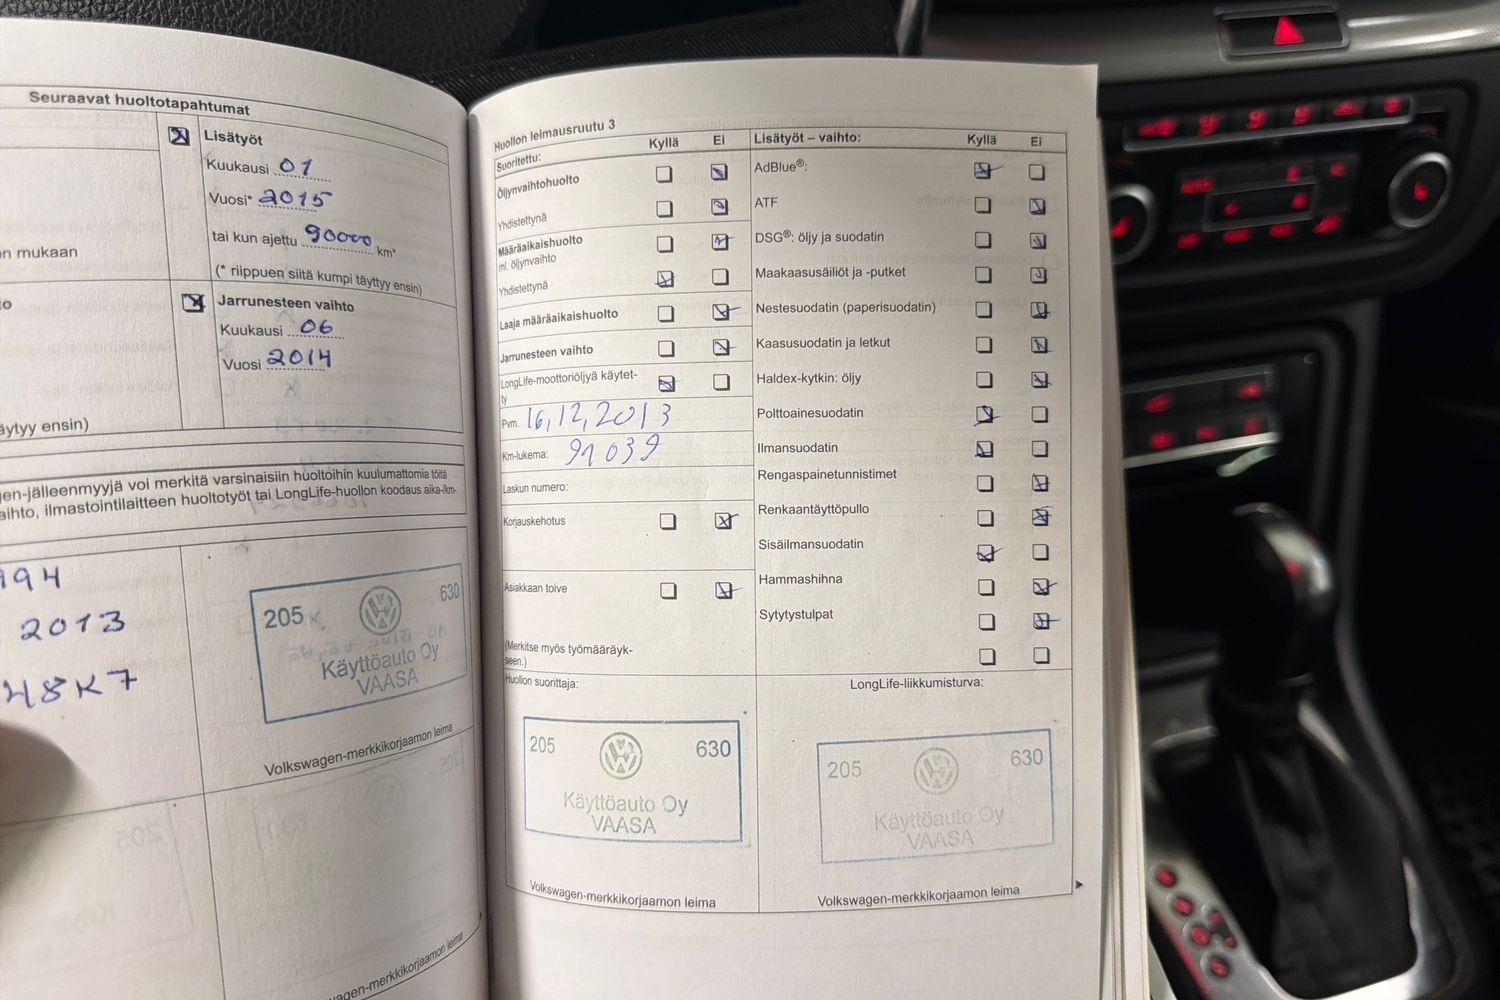 Seuraavat huoltotapahtumat
Lisätyöt
Kuukausi 01
Vuosi* 2015
tai kun ajettu 90000 km*
(* riippuen siitä kumpi täyttyy ensin)
n mukaan
Jarrunesteen vaihto
Kuukausi 06
Vuosi 2014
äytyy ensin)
gen-jälleenmyyjä voi merkitä varsinaisiin huoltoihin kuulumattomia töitä
aihto, ilmastointilaitteen huoltotyöt tai LongLife-huollon koodaus aika-/km-
994
2013
48K7
205 630
Käyttöauto Oy
VAASA
Volkswagen-merkkikorjaamon leima
wagen-merkkikorjaamon leima
Huollon leimausruutu 3
Suoritettu: Kyllä Ei
Öljynvaihtohuolto
Yhdistettynä
Määräaikaishuolto
ml. öljynvaihto
Yhdistettynä
Laaja määräaikaishuolto
Jarrunesteen vaihto
LongLife-moottoriöljyä käytet-
ty
Pvm. 16,12,2013
Km-lukema: 91039
Laskun numero:
Korjauskehotus
Asiakkaan toive
(Merkitse myös työmääräyk-
seen.)
Huollon suorittaja:
205 630
Käyttöauto Oy
VAASA
Volkswagen-merkkikorjaamon leima
Lisätyöt – vaihto: Kyllä Ei
AdBlue®:
ATF
DSG®: öljy ja suodatin
Maakaasusäiliöt ja -putket
Nestesuodatin (paperisuodatin)
Kaasusuodatin ja letkut
Haldex-kytkin: öljy
Polttoainesuodatin
Ilmansuodatin
Rengaspainetunnistimet
Renkaantäyttöpullo
Sisäilmansuodatin
Hammashihna
Sytytystulpat
LongLife-liikkumisturva:
205 630
Käyttöauto Oy
VAASA
Volkswagen-merkkikorjaamon leima